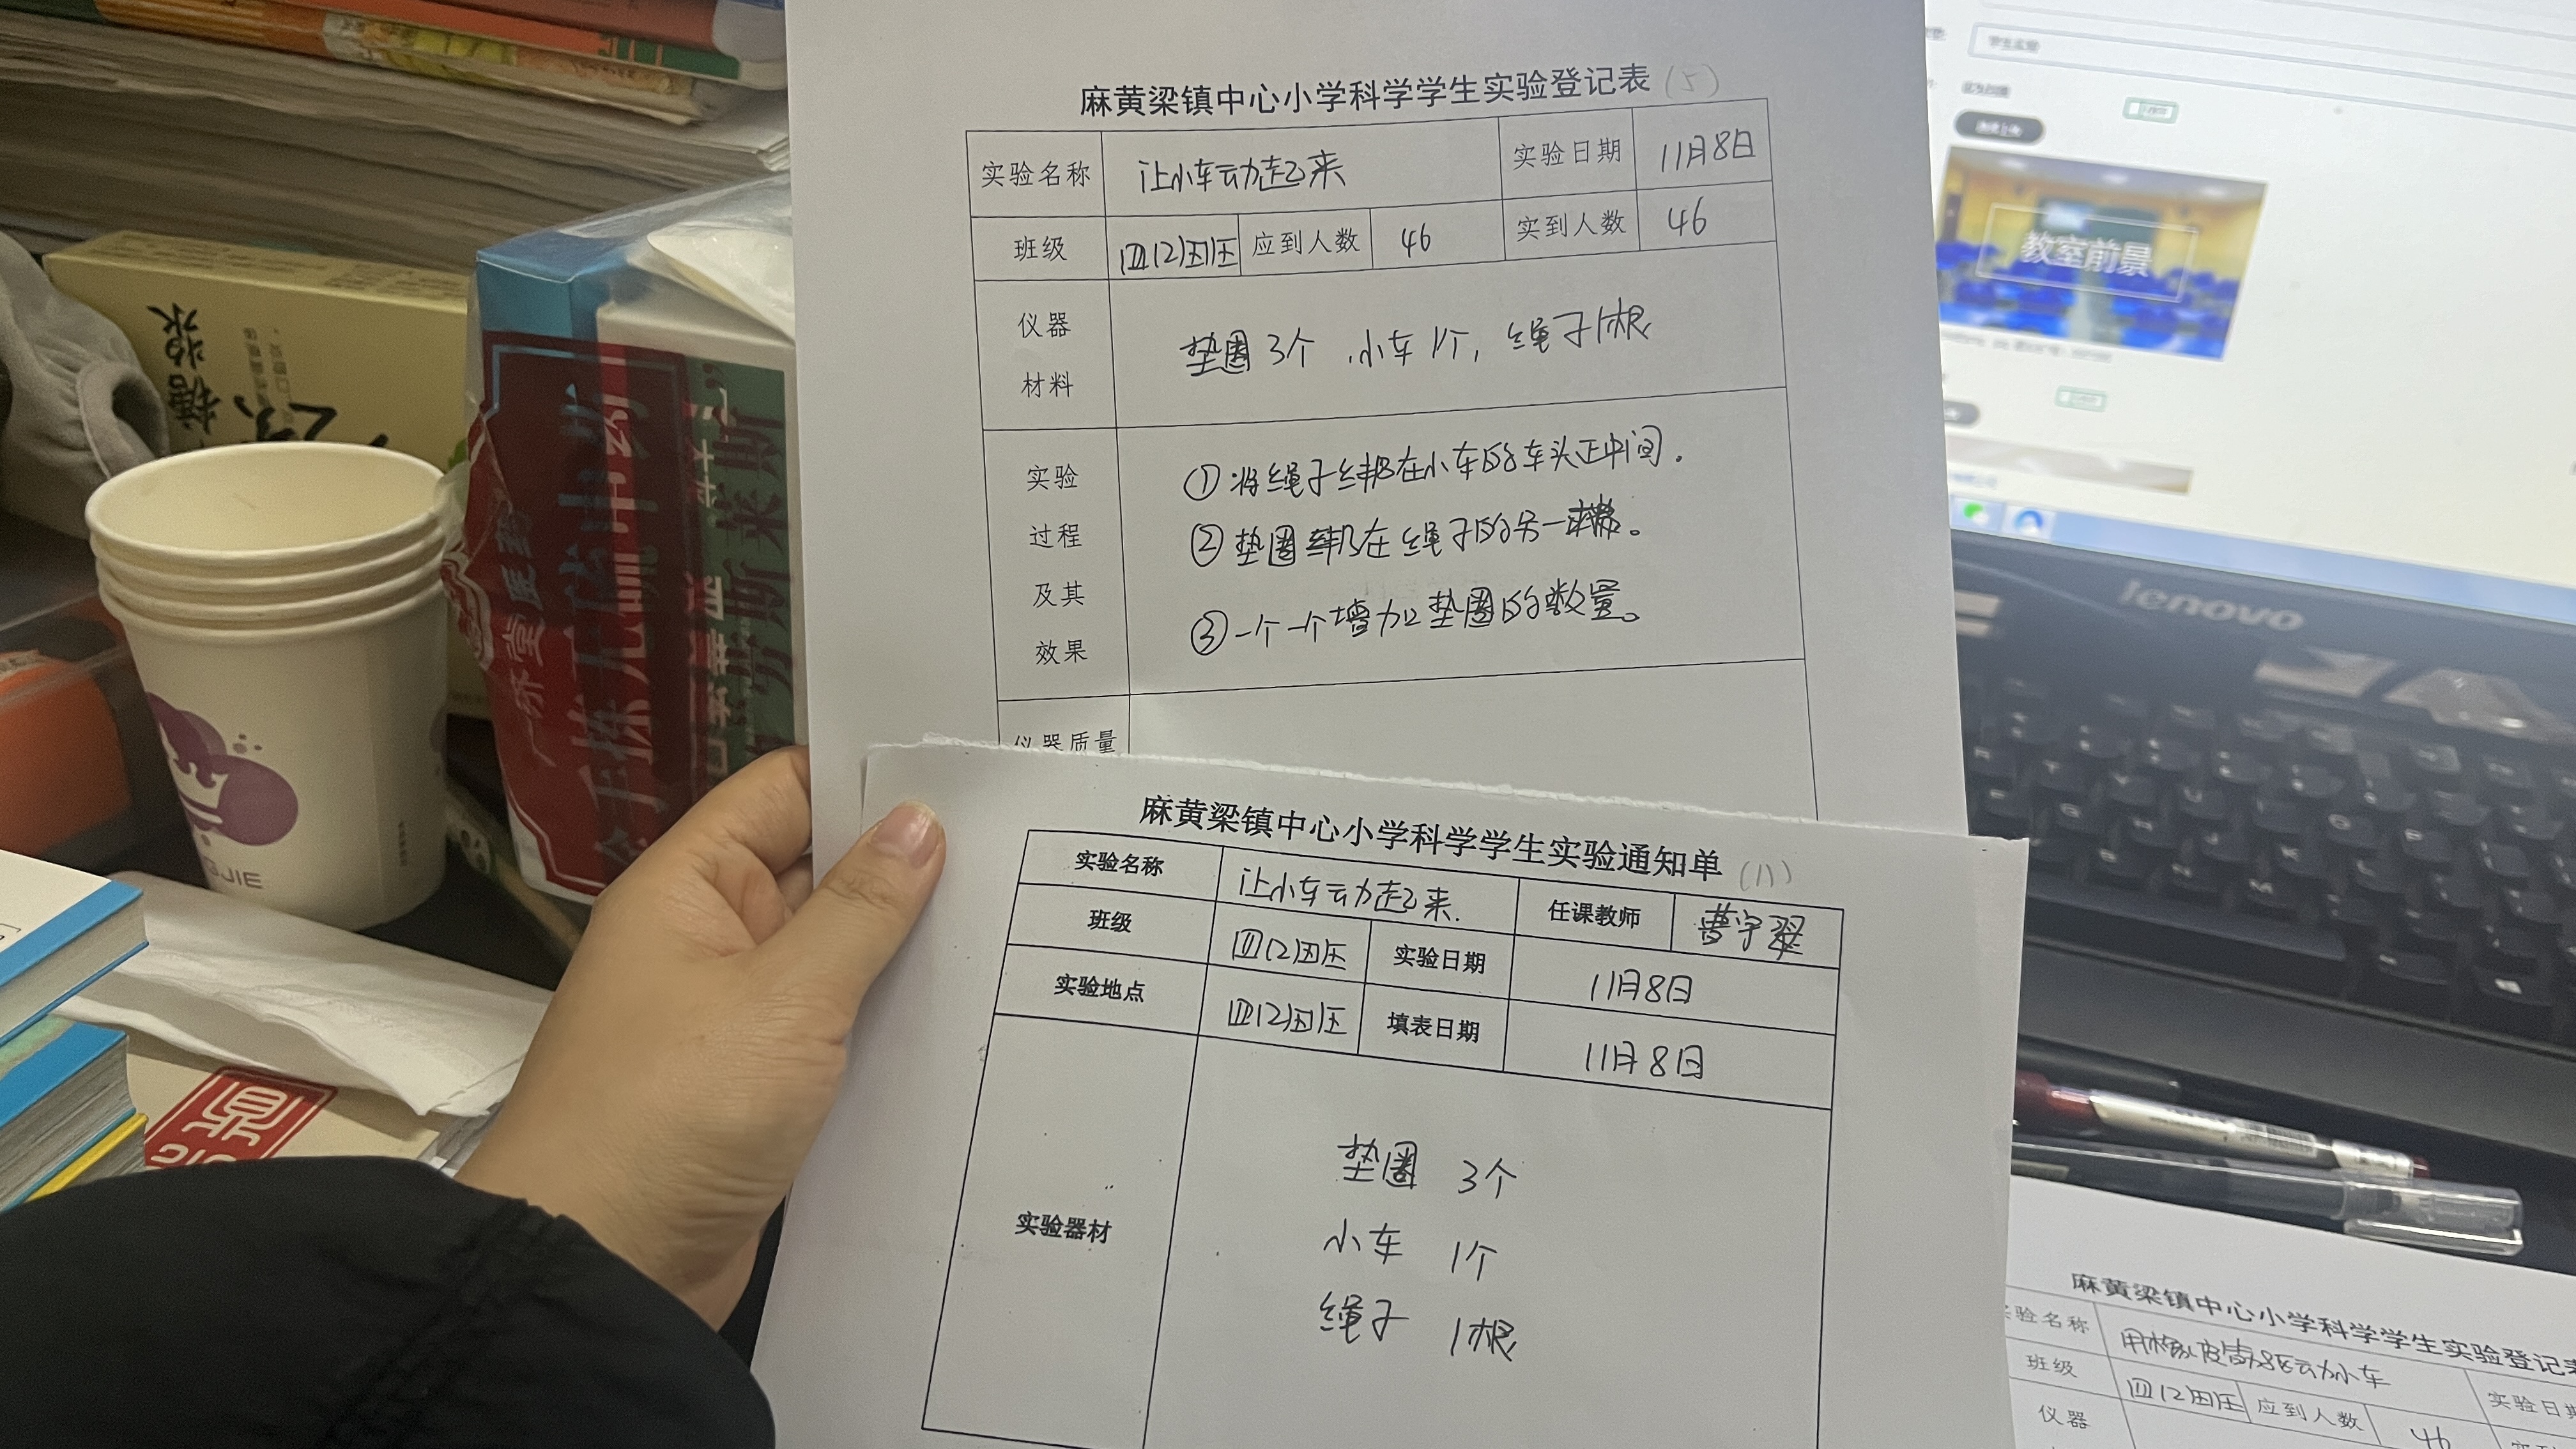 麻黄梁镇中心小学科学学生实验登记表 (5)
实验名称 让小车动起来 实验日期 11月8日
班级 四(2)班 应到人数 46 实到人数 46
仪器材料 垫圈3个，小车1个，绳子1根
实验过程及其效果
①将绳子绑在小车的车头正中间。
②垫圈绑在绳子的另一端。
③一个一个增加垫圈的数量。
仪器质量
麻黄梁镇中心小学科学学生实验通知单 (11)
实验名称 让小车动起来. 任课教师 曹宇翠
班级 四(2)班 实验日期 11月8日
实验地点 四(2)班 填表日期 11月8日
实验器材
垫圈 3个
小车 1个
绳子 1根
麻黄梁镇中心小学科学学生实验登记表
实验名称 用橡皮筋驱动小车
班级 四(2)班 应到人数 46
实验日
仪器
教室前景
lenovo